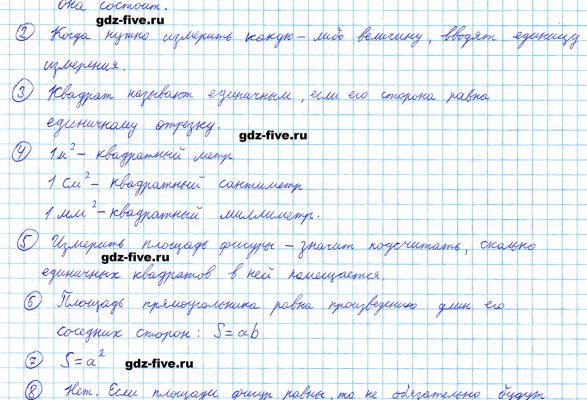 она состоит.
gdz-five.ru
② Когда нужно измерить какую-либо величину, вводят единицу
измерения.
③ Квадрат называют единичным, если его сторона равна
единичному отрезку.
gdz-five.ru
④ 1м² - квадратный метр
1 см² - квадратный сантиметр
1 мм² - квадратный миллиметр.
⑤ Измерить площадь фигуры - значит подсчитать, сколько
gdz-five.ru
единичных квадратов в ней помещается.
⑥ Площадь прямоугольника равна произведению длин его
соседних сторон: S=ab
⑦ S=a²
gdz-five.ru
⑧ Нет. Если площади фигур равны, то не обязательно будут